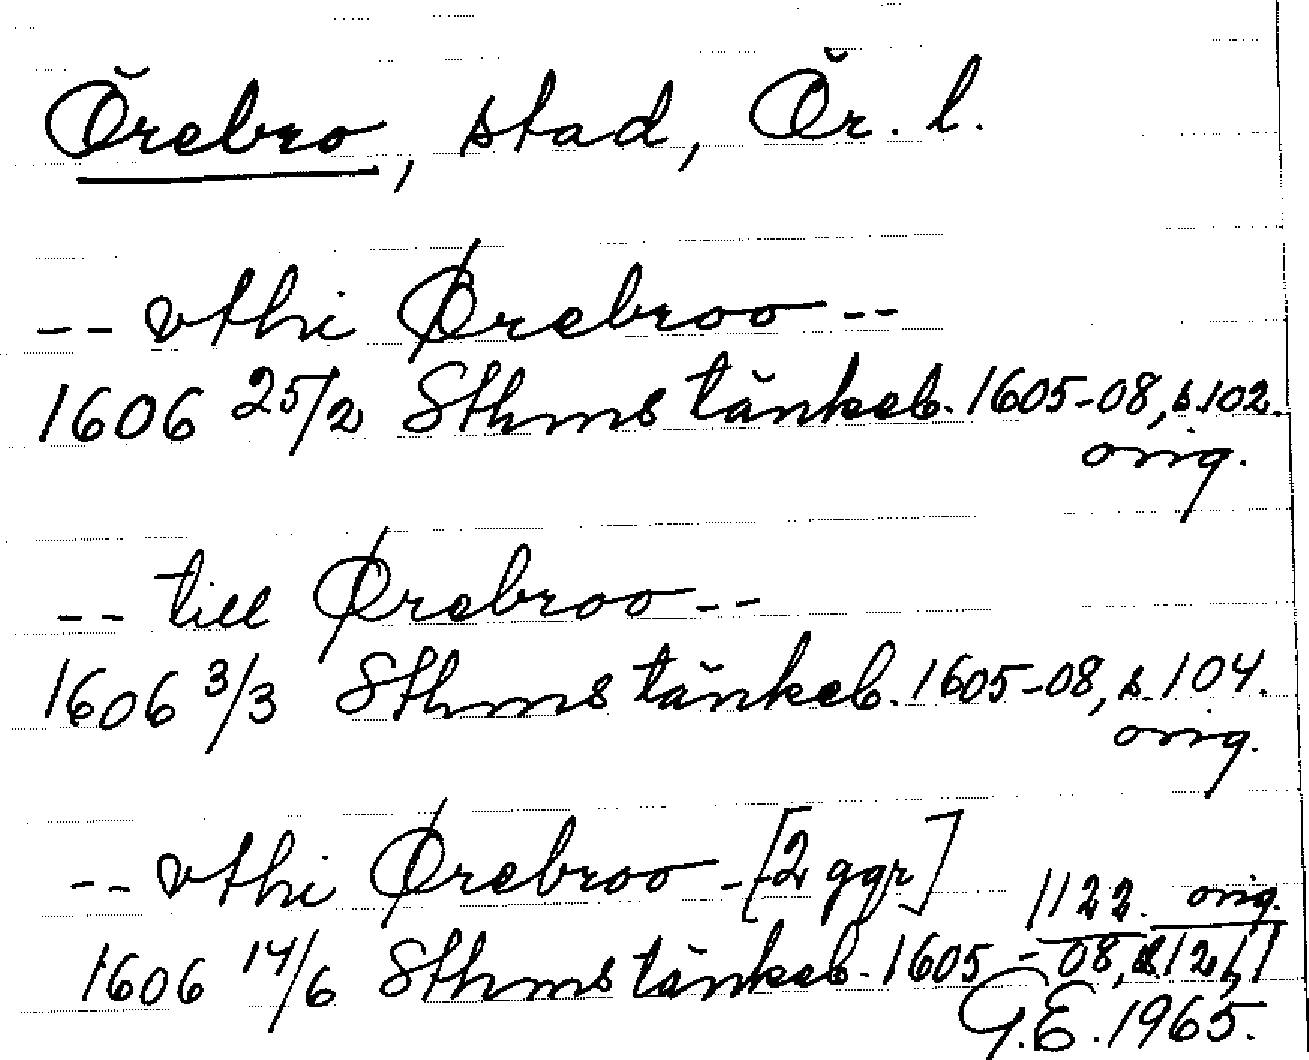 Örebro, stad, Ör. l.
-- vthi Ørebroo --
1606 25/2 Sthms tänkeb. 1605-08, s. 102.
orig.
-- till Ørebroo --
1606 3/3 Sthms tänkeb. 1605-08, s. 104.
orig.
-- vthi Ørebroo - [2 ggr]
122. orig.
1606 14/6 Sthms tänkeb. 1605-08, s. 121,
G.E. 1965.